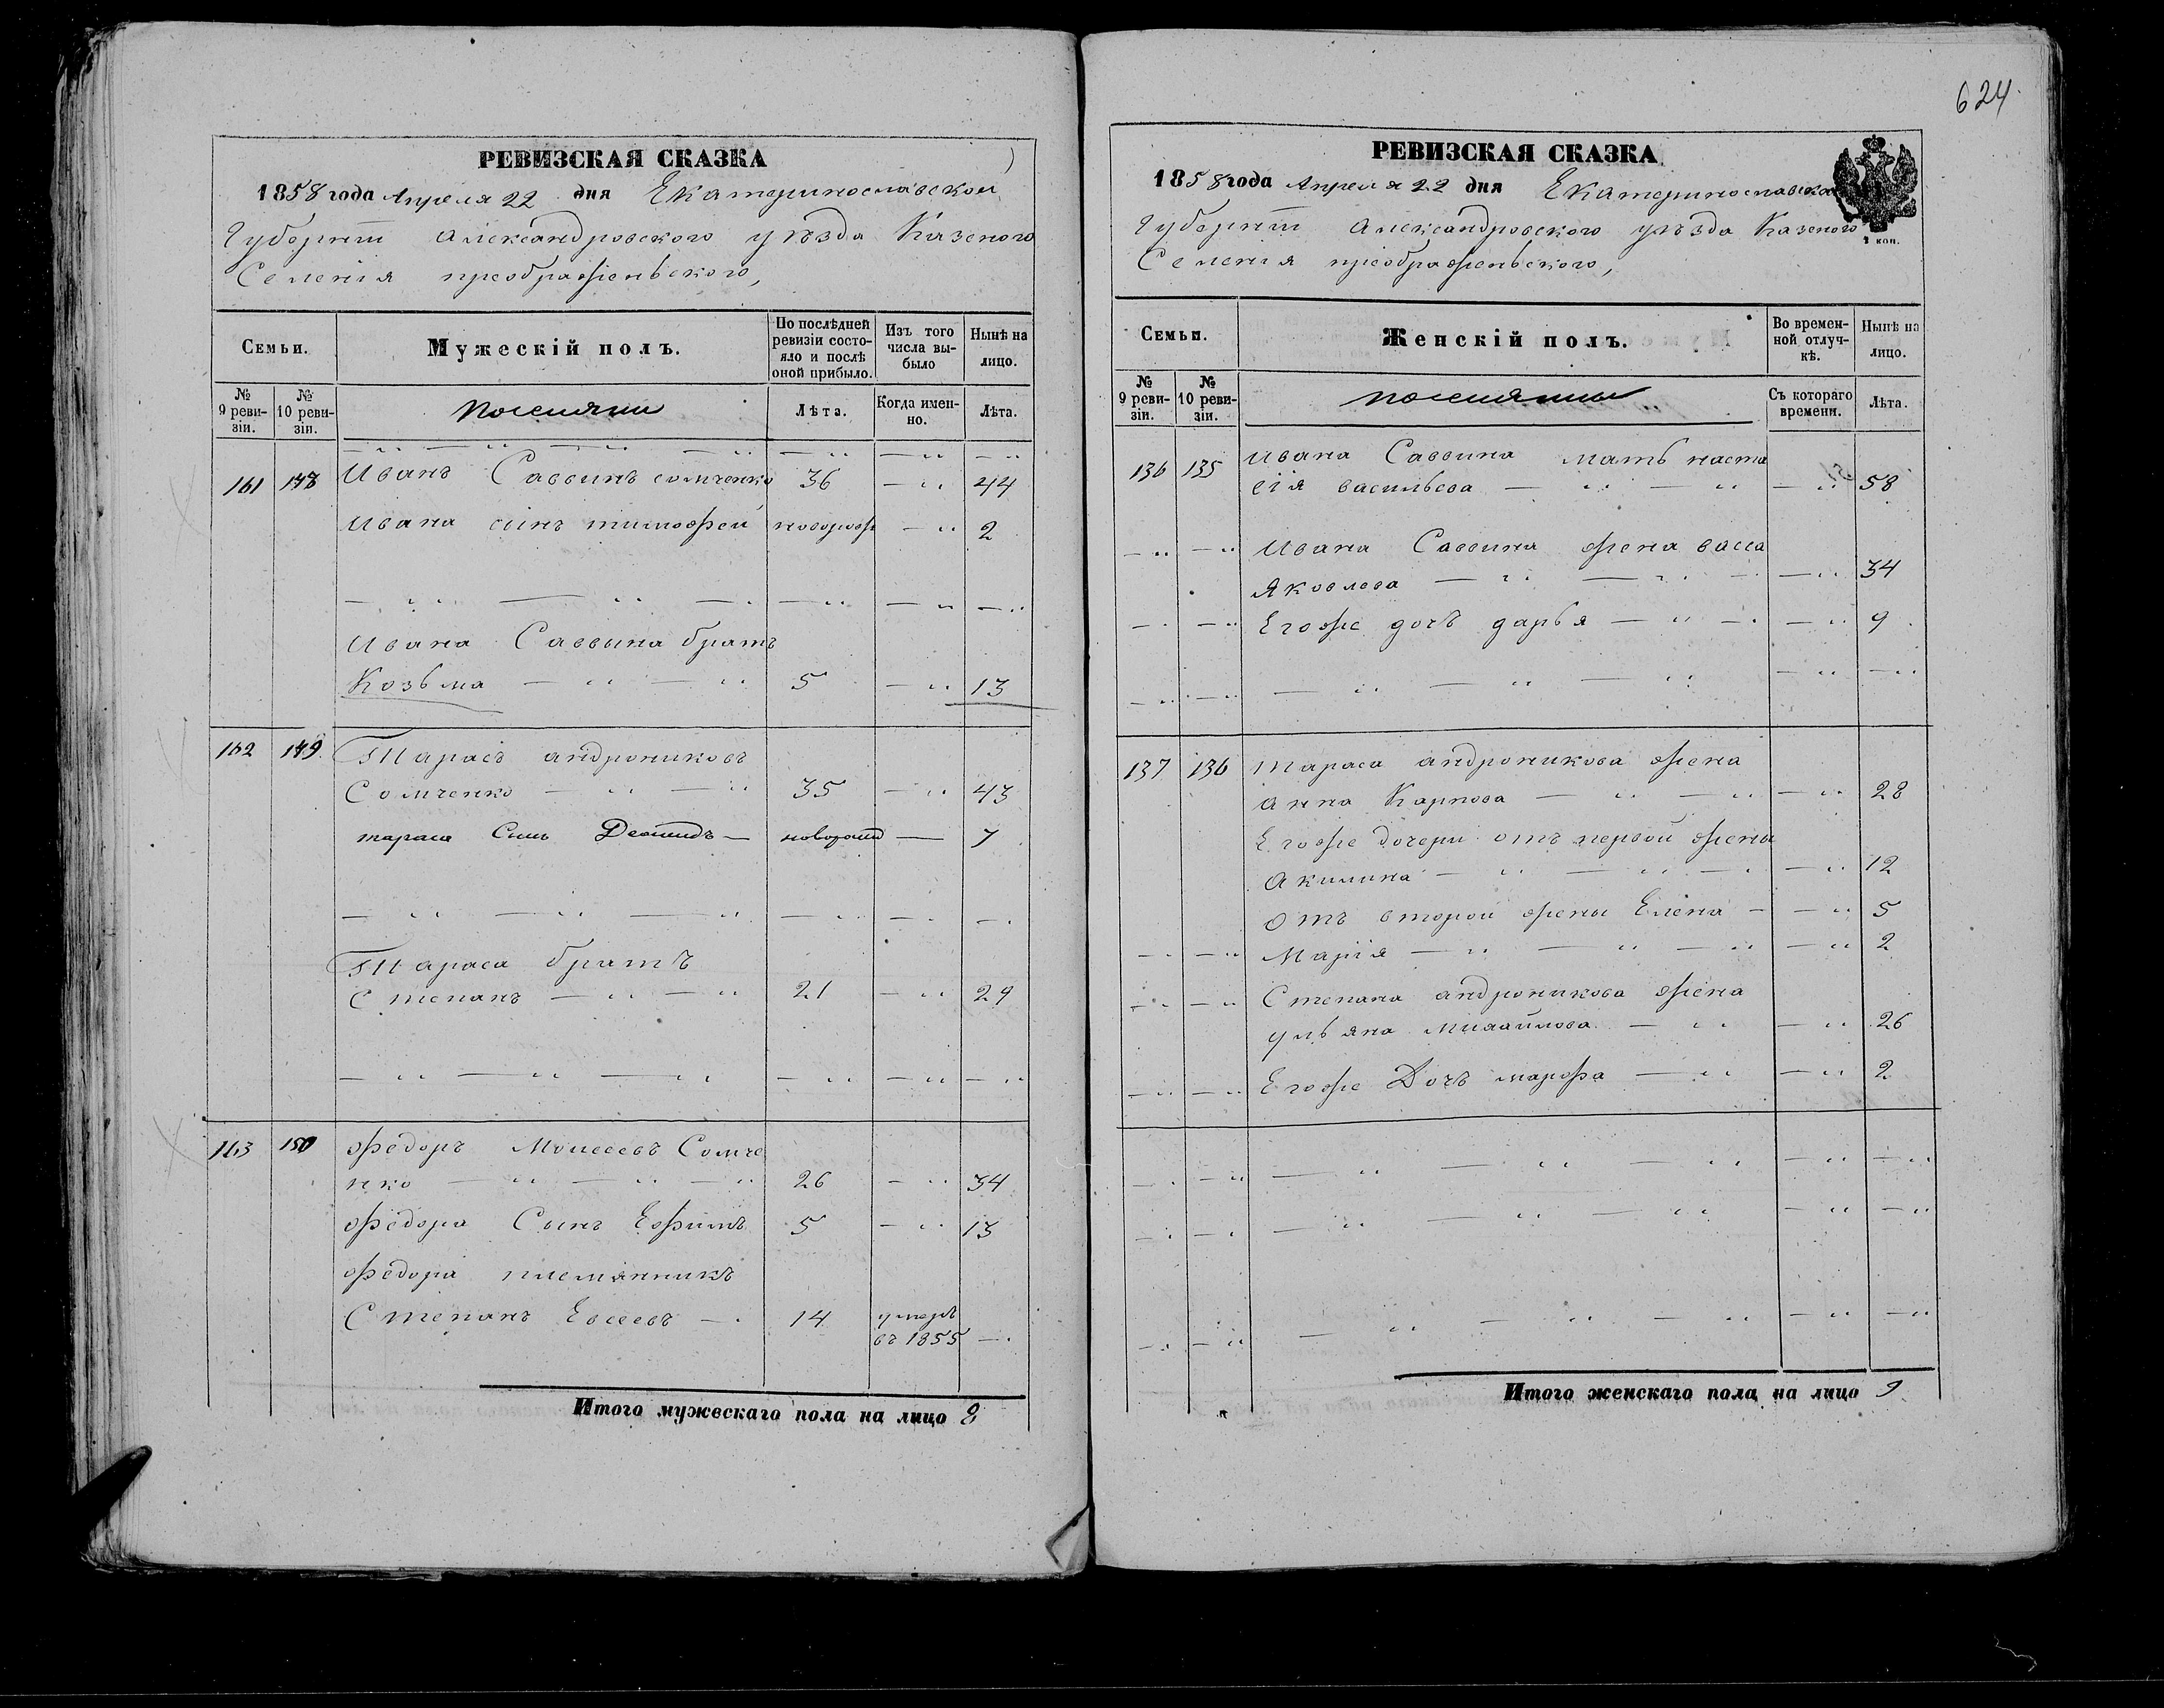 624
РЕВИЗСКАЯ СКАЗКА
1858 года Апреля 22 дня Екатеринославской
Губерніи Александровского уѣзда Казеного
Селенія преображеньского,
Семьи.
Мужескій полъ.
По послѣдней ревизіи состояло и послѣ оной прибыло.
Изъ того числа выбыло
Нынѣ на лицо.
№ 9 ревизіи.
№ 10 ревизіи.
поселяни
Лѣта.
Когда именно.
Лѣта.
161 148 Иванъ Саввинъ сомченко 36 — " 44
Ивана сынъ тимофей новорож — " 2
Ивана Саввина братъ
Козьма — " — " 5 — " 13
162 149 Тарасъ андрониковъ
Сомченко — " — " 35 — " 43
тараса Сынъ Леонидъ — новорожд — 7
Тараса братъ
Степанъ — " — " 21 — " 29
163 150 Федоръ Моисеевъ Сомче
нко — " — " — " 26 — " 34
Федора Сынъ Ефимъ 5 — " 13
Федора племянникъ
Степанъ Евсеевъ — " 14 умеръ
въ 1855 — "
Итого мужескаго пола на лицо 8
РЕВИЗСКАЯ СКАЗКА
1858 года Апреля 22 дня Екатеринославской
Губерніи Александровского уѣзда Казеного
Селенія преображеньского,
1 коп.
Семьи.
Женскій полъ.
Во временной отлучкѣ.
Нынѣ на лицо.
№ 9 ревизіи.
№ 10 ревизіи.
поселянны
Съ котораго времени.
Лѣта.
136 135 Ивана Саввина мать наста
сія васильева — " — " — " 58
— " — " Ивана Саввина жена васса
Яковлева — " — " — " 34
— " — " Егоже дочь дарья — " — " — " 9
137 136 Тараса андроникова жена
анна Карпова — " — " — " 28
Егоже дочери отъ первой жены
Акилина — " — " — " — " 12
Отъ второй жены Елена — — " 5
— " — " Марія — " — " — " — " 2
— " — " Степана андроникова жена
ульяна михайлова — " — " 26
— " — " Егоже Дочь марфа — " — " 2
Итого женскаго пола на лицо 9